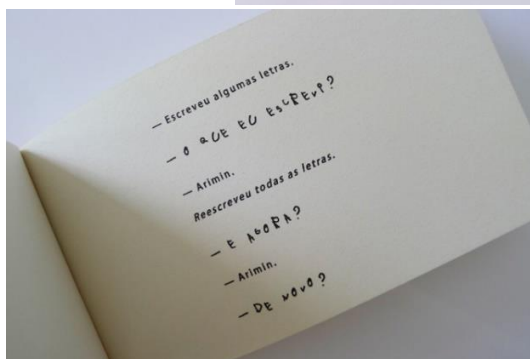 — Escreveu algumas letras.
— O QUE EU ESCREVI?
— Arimin.
Reescreveu todas as letras.
— E AGORA?
— Arimin.
— DE NOVO?